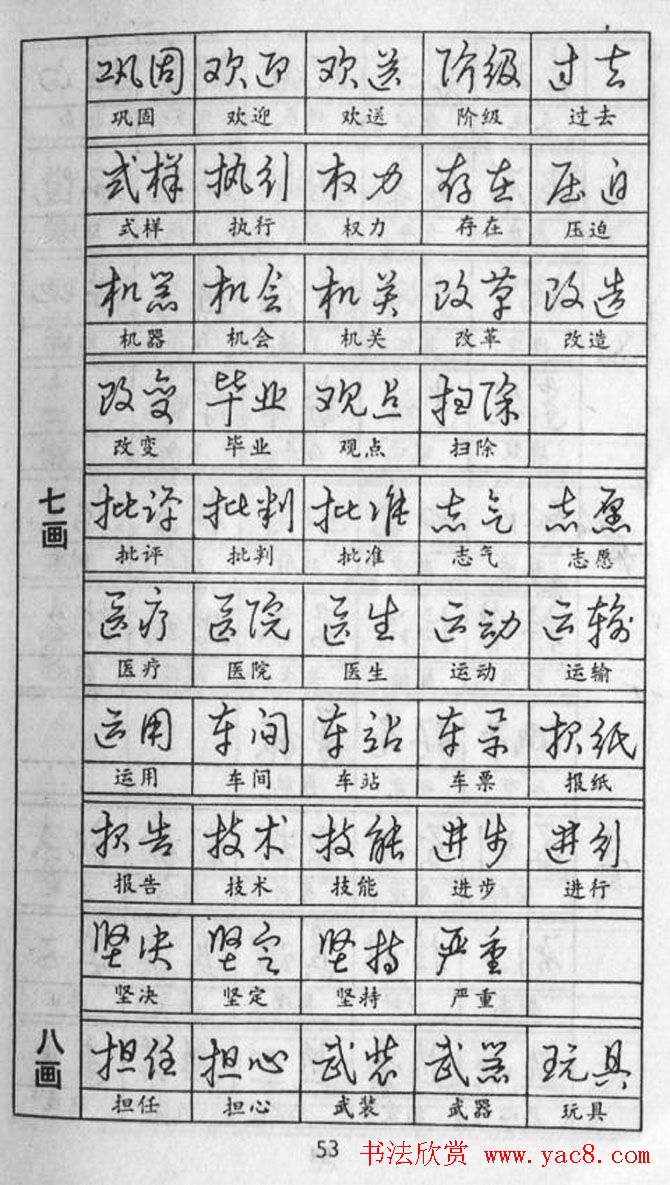 巩固 欢迎 欢送 阶级 过去
巩固 欢迎 欢送 阶级 过去
式样 执行 权力 存在 压迫
式样 执行 权力 存在 压迫
机器 机会 机关 改革 改造
机器 机会 机关 改革 改造
改变 毕业 观点 扫除
改变 毕业 观点 扫除
七画
批评 批判 批准 志气 志愿
批评 批判 批准 志气 志愿
医疗 医院 医生 运动 运输
医疗 医院 医生 运动 运输
运用 车间 车站 车票 报纸
运用 车间 车站 车票 报纸
报告 技术 技能 进步 进行
报告 技术 技能 进步 进行
坚决 坚定 坚持 严重
坚决 坚定 坚持 严重
八画
担任 担心 武装 武器 玩具
担任 担心 武装 武器 玩具
53 书法欣赏 www.yac8.com